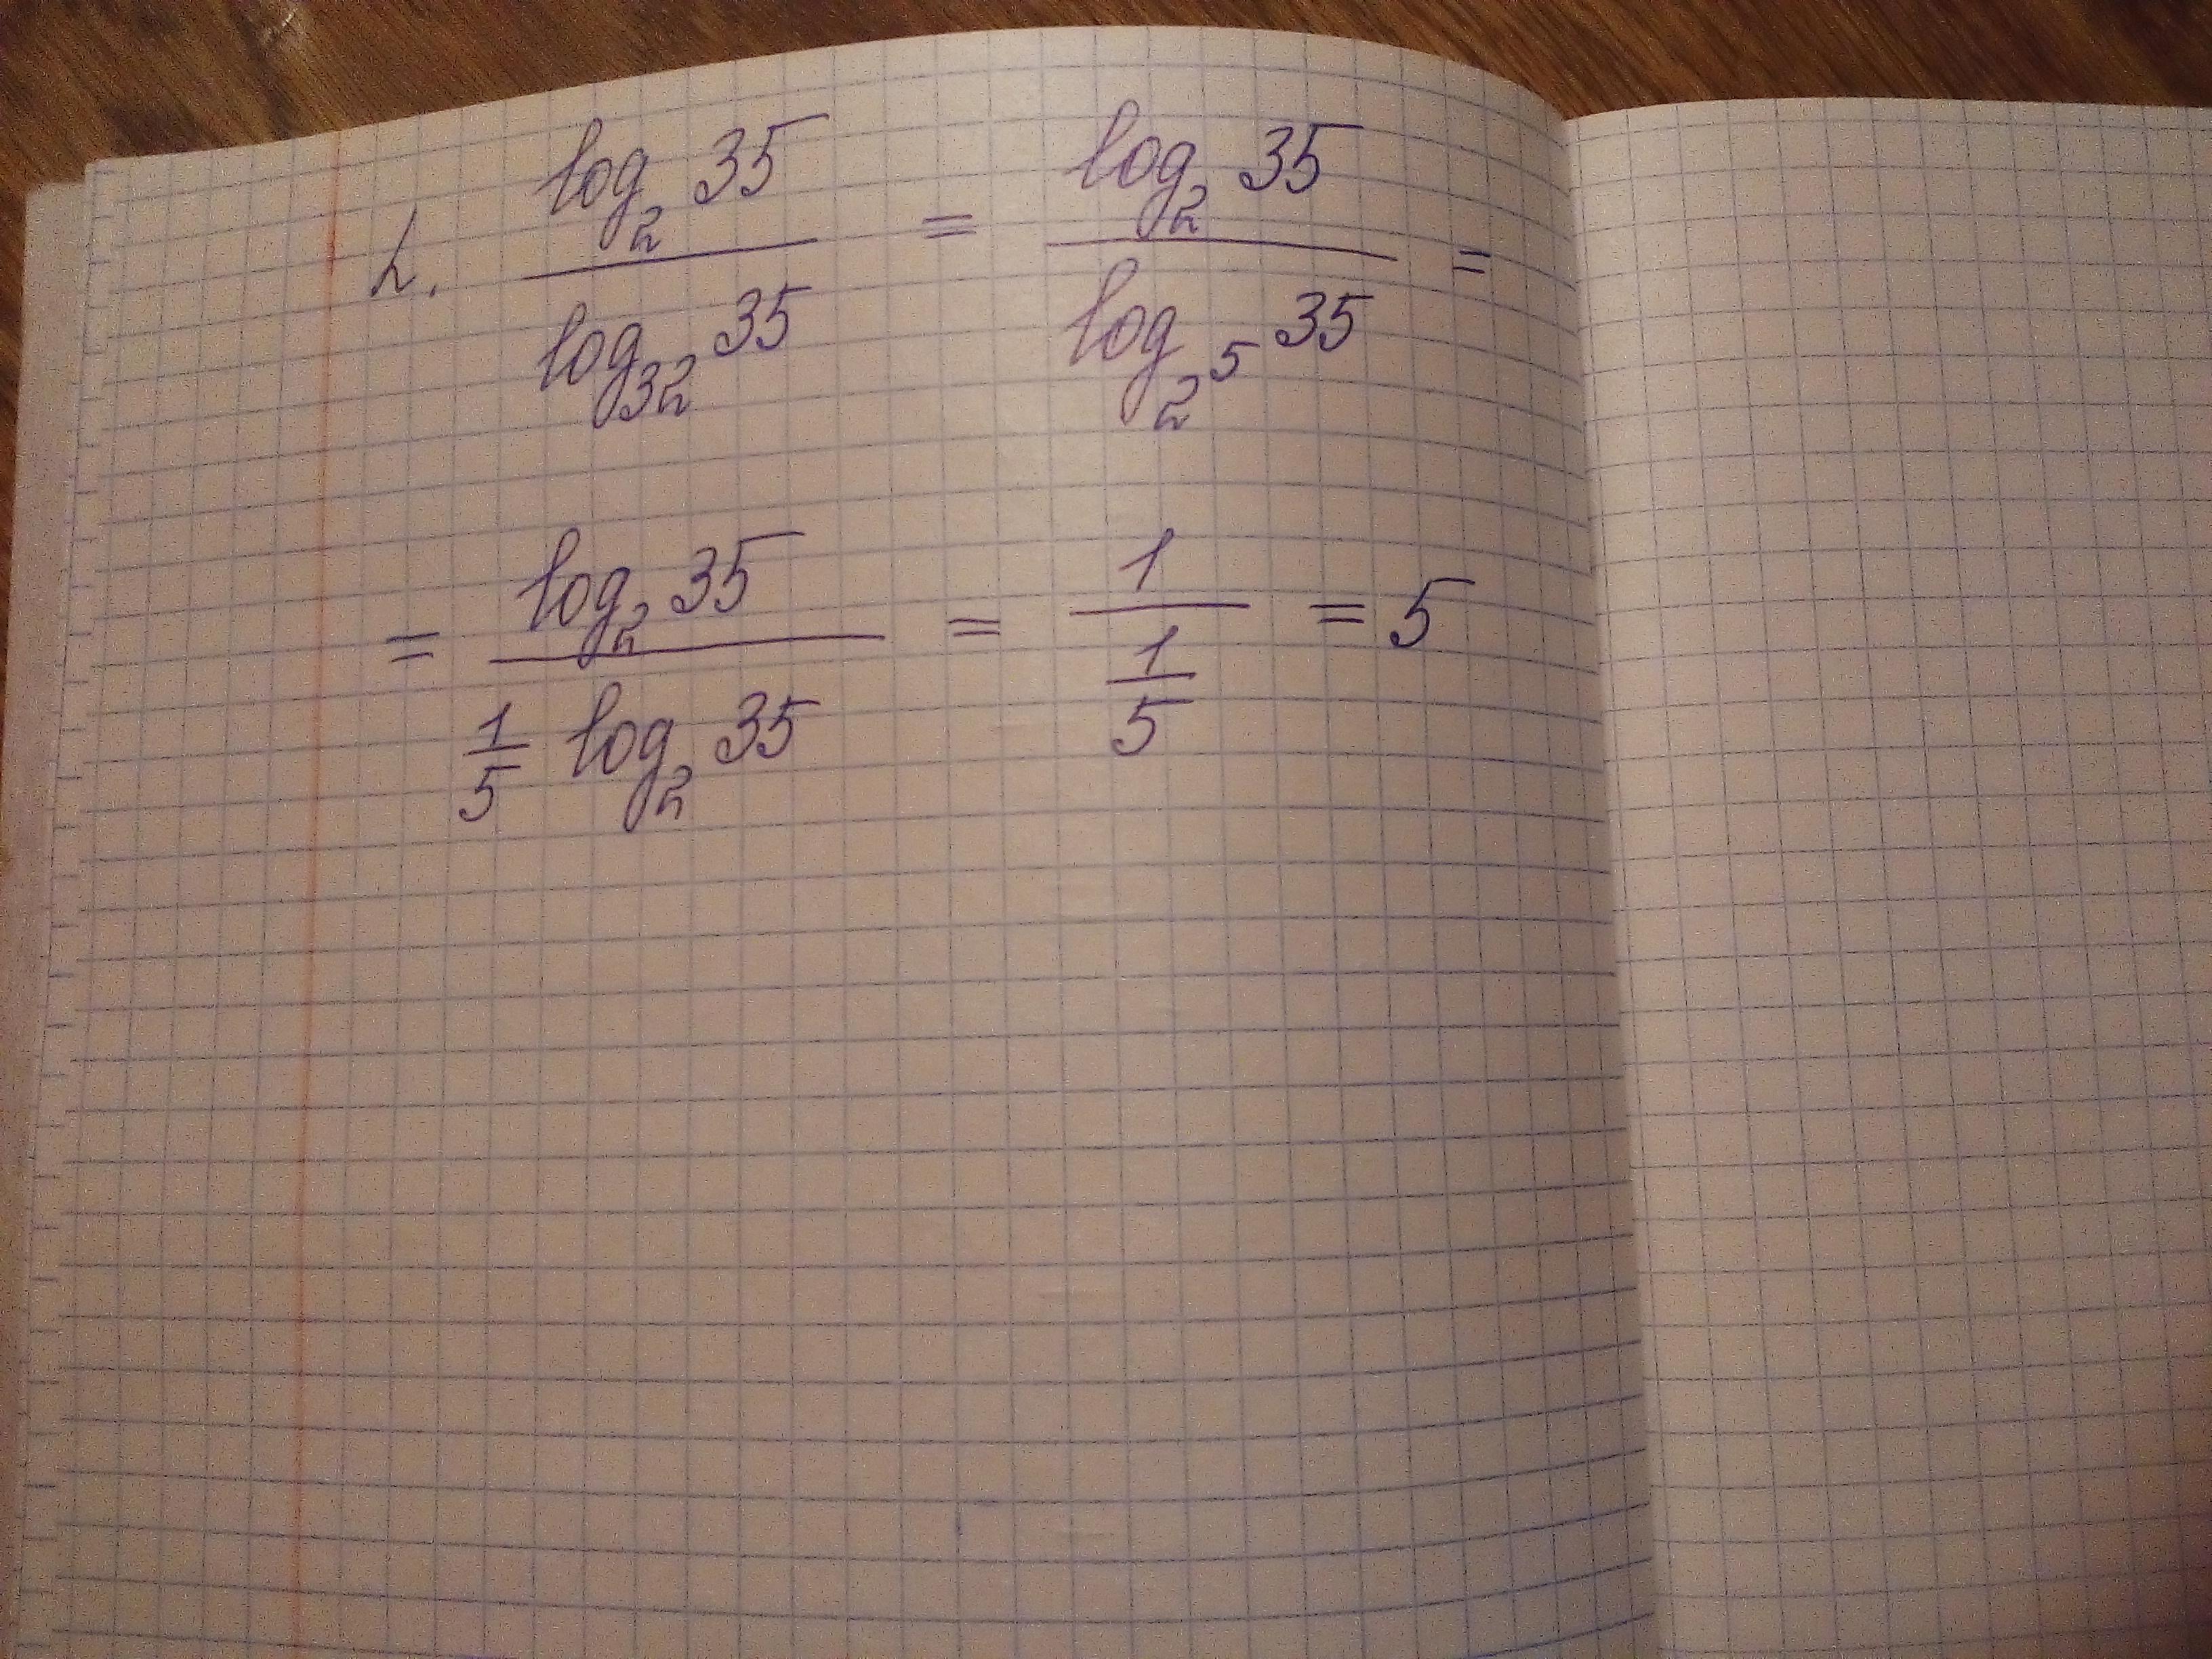 2. log₂ 35 / log₃₂ 35 = log₂ 35 / log₂⁵ 35 =
= log₂ 35 / 1/5 log₂ 35 = 1 / 1/5 = 5